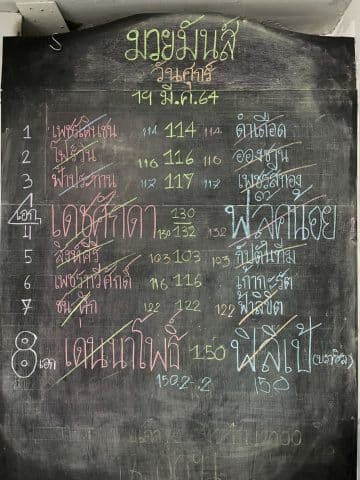 มวยมันส์
วันศุกร์
19 มี.ค.64
1 เพชรเดิมชน 114 114 114 ดำเดือด
2 116 116 116
3 ฟ้าประทาน 117 117 117 เพชรสีทอง
4 เอก เดชศักดา 130 130 132 132
5 สิงห์ศิริ 103 103 103 กัปตันทีม
6 เพชรทวีศักดิ์ 116 116
7 122 122 122 ฟ้าลิขิต
8 เอก เดนนาโพธิ์ 150 ฟิลิเป้ (บราซิล)
150.2-.2 150